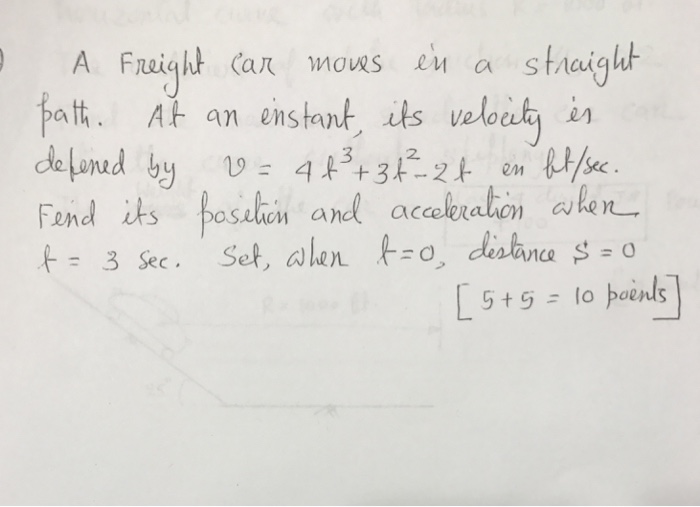 A Freight car moves in a straight
path. At an instant, its velocity is
defined by v = 4t³+3t²-2t in ft/sec.
Find its position and acceleration when
t = 3 sec. Set, when t=0, distance S = 0
[5+5 = 10 points]